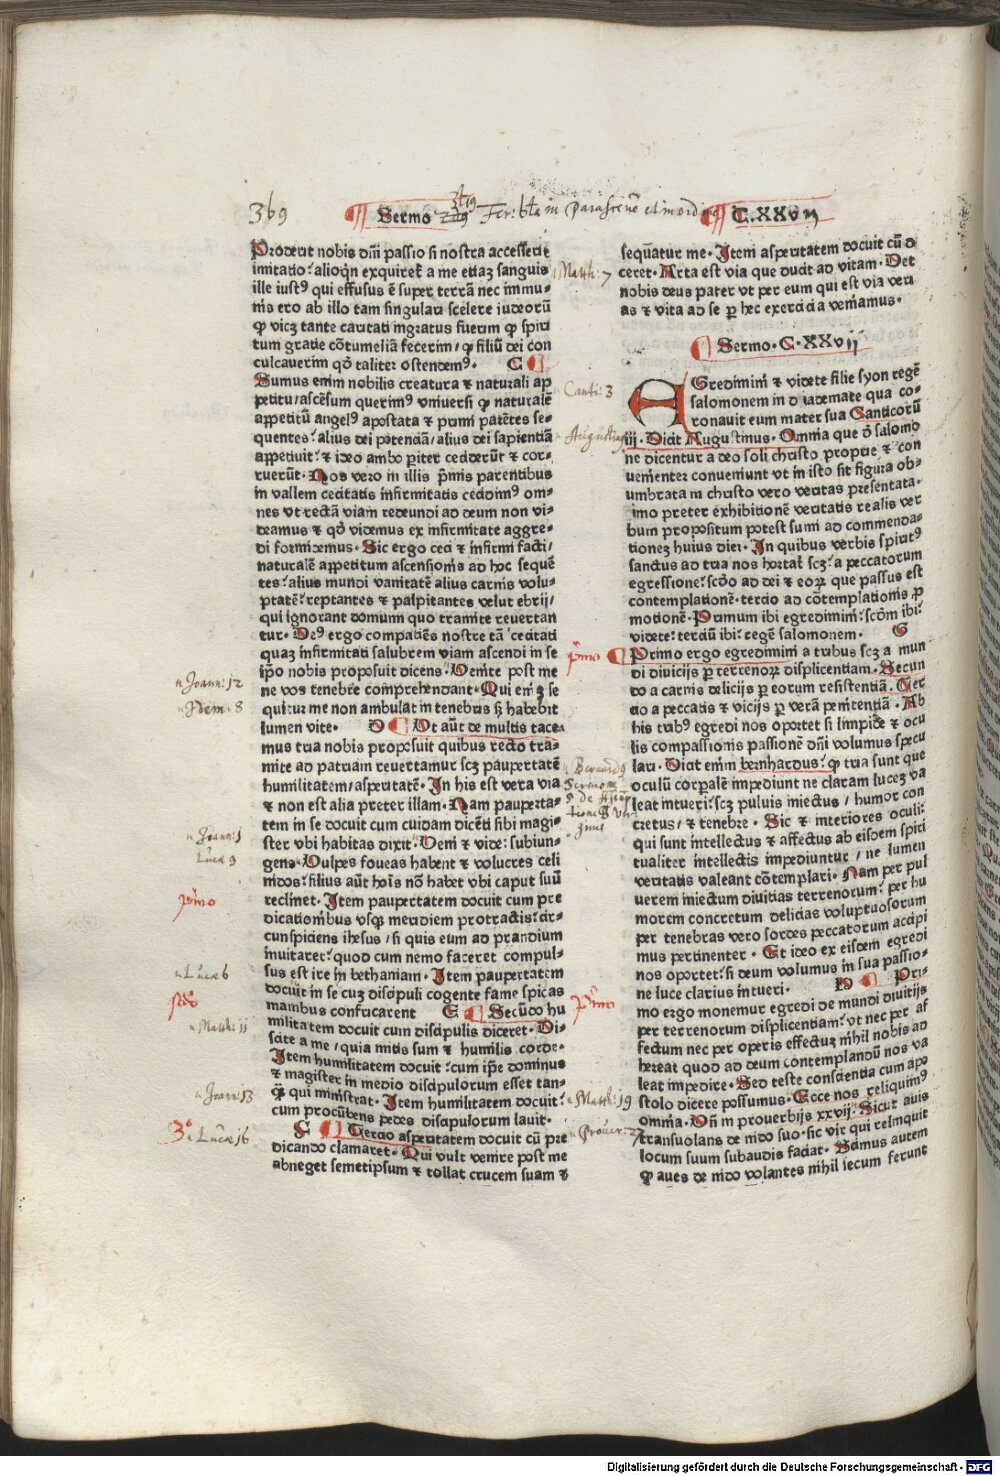 369
Sermo
Fer: 6ta in Parasceue
C.XXVII
Proderit nobis dñi passio si nostra accesserit
imitatio: alioqñ exquiret̃ a me etiaz sanguis
ille iust⁹ qui effusus ē super terrā nec immu-
nis ero ab illo tam singulari scelere iudeorū
ꝙ vicz tante caritati ingratus fuerim ꝙ spiri
tum gratie cōtumeliā fecerim/ ꝙ filiū dei con
culcauerim qđ taliter ostendem⁹. C
Sumus enim nobilis creatura ⁊ naturali ap
petitu/ascēsum querim⁹ vniuersi ꝙ naturalē
appetitū angel⁹ apostata ⁊ primi parētes se-
quentes: alius dei potenciā/alius dei sapientiā
appetiuit: ⁊ ideo ambo ꝑiter ceciderūt ⁊ cor-
ruerūt. Nos vero in illis p̄mis parentibus
in vallem cecitatis infirmitatis cecidim⁹ om-
nes vt rectā viam redeundi ad deum non vi-
deamus ⁊ qđ videmus ex infirmitate aggre-
di formidemus. Sic ergo ceci ⁊ infirmi facti/
naturalē appetitum ascensionis ad hoc sequē
tes: alius mundi vanitatē alius carnis volu-
ptatē: reptantes ⁊ palpitantes velut ebrij/
qui ignorant domum quo tramite reuertan
tur. De⁹ ergo compatiēs nostre tā cecitati
quaz infirmitati salubrem viam ascendi in se
ip̄o nobis proposuit dicens: Venite post me
ne vos tenebre comprehendant. Qui em̄ ꝫ se
quitur me non ambulat in tenebris sꝫ habebit
lumen vite. D Ut aūt de multis tacea
mus tria nobis proposuit quibus recto tra-
mite ad patriam reuertamur scz paupertatē
humilitatem/asperitatē. In his est vera via
⁊ non est alia preter illam. Nam pauperta-
tem in se docuit cum cuidam dicēti sibi magi-
ster vbi habitas dixit. Veni ⁊ vide: subiun-
gens. Vulpes foueas habent ⁊ volucres celi
nidos: filius aūt hoīs nō habet vbi caput suū
reclinet. Item paupertatem docuit cum pre
dicationibus vsqꝫ meridiem protractis: cir-
cunspiciens ihesus/ si quis eum ad prandium
inuitaret: quod cum nemo faceret compul-
sus est ire in bethaniam. Item paupertatem
docuit in se cuz discipuli cogente fame spicas
manibus confricarent E Secūdo hu
militatem docuit cum discipulis diceret. Di-
scite a me/quia mitis sum ⁊ humilis corde.
Item humilitatem docuit: cum ip̄e dominus
⁊ magister in medio discipulorum esset tan-
q̃ qui ministrat. Item humilitatem docuit:
cum procūbens pedes discipulorum lauit.
F Tercio asperitatem docuit cū pre
dicando clamaret. Qui vult venire post me
abneget semetipsum ⁊ tollat crucem suam ⁊
Joann: 12
Idem: 8
Joann: 1
Luce 9
p̃mo
Luce 6
Matth: 11
Joann: 13
3°
Luce 16
sequatur me. Item asperitatem docuit cū di
ceret. Arta est via que ducit ad vitam. Det
nobis deus pater vt per eum qui est via veri
as ⁊ vita ad se ꝑ hec exercicia veniamus.
Sermo. C.XXVII
AGredimini ⁊ videte filie syon regē
salomonem in diademate qua co-
ronauit eum mater sua Canticorū
iij. Dicit Augustinus. Omnia que đ salomo
ne dicentur a deo soli christo proprie ⁊ con
uenienter conueniunt vt in isto sit figura ob-
umbrata in christo vero veritas presentata.
imo preter exhibitionē veritatis realis ver
bum propositum potest sumi ad commenda-
tionez huius diei. In quibus verbis spirit⁹
sanctus ad tria nos hortat̃ scz: a peccatorum
egressione: scđo ad dei ⁊ eoꝝ que passus est
contemplationē. tercio ad cōtemplationis ꝓ
motionē. Primum ibi egredimini: scđm ibi:
videte: terciū ibi: regē salomonem. G
Primo ergo egredimini a tribus scz a mun
di diuicijs ꝑ terrenoꝝ displicentiam. Secun
do a carnis delicijs ꝑ eorum resistentiā. Ter
tio a peccatis ⁊ vicijs ꝑ verā penitentiā. Ab
his trib⁹ egredi nos oportet si limpide ⁊ ocu
lis compassionis passionē dñi volumus specu
lari. Dicit enim bernhardus: ꝙ tria sunt que
oculū corꝑalem impediunt ne claram lucez va
leat intueri: scz puluis iniectus/ humor con
cretus/ ⁊ tenebre. Sic ⁊ interiores oculi:
qui sunt intellectus ⁊ affectus ab eisdem spiri
tualiter intellectis impediuntur/ ne lumen
veritatis valeant cōtemplari. Nam per pul
uerem iniectum diuitias terrenorum: per hu
morem concretum delicias voluptuosorum
per tenebras vero sordes peccatorum accipi
mus pertinenter. Et ideo ex eisdem egredi
nos oportet: si deum volumus in sua passio-
ne luce clarius intueri. H Pri-
mo ergo monemur egredi de mundi diuitijs
per terrenorum displicentiam: vt nec per af
fectum nec per operis effectuz nihil nobis ad
hereat quod ad deum contemplandū nos va
leat impedire. Sed teste conscientia cum apo
stolo dicere possumus. Ecce nos reliquim⁹
omnia. Vñ in prouerbijs xxvij. Sicut auis
transuolans de nido suo. sic vir qui relinquit
locum suum subaudis faciat. Scimus autem
ꝙ aues de nido volantes nihil secum ferunt
Matth: 7
Canti: 3
Augustin⁹
p̃mo
Bernard⁹
Sermo
p̃mo
Matth: 19
Prouer: 27
Digitalisierung gefördert durch die Deutsche Forschungsgemeinschaft - DFG